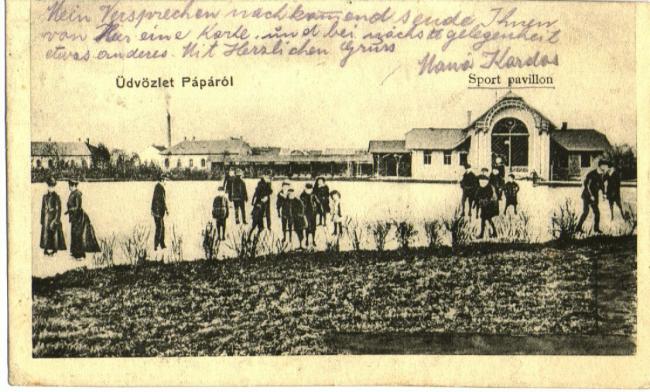 Mein Versprechen nachkommend sende Ihnen
von Hier eine Karte, und bei nächst gelegenheit
etwas anderes. Mit Herzlichen Gruss
Kardos
Üdvözlet Pápáról
Sport pavillon